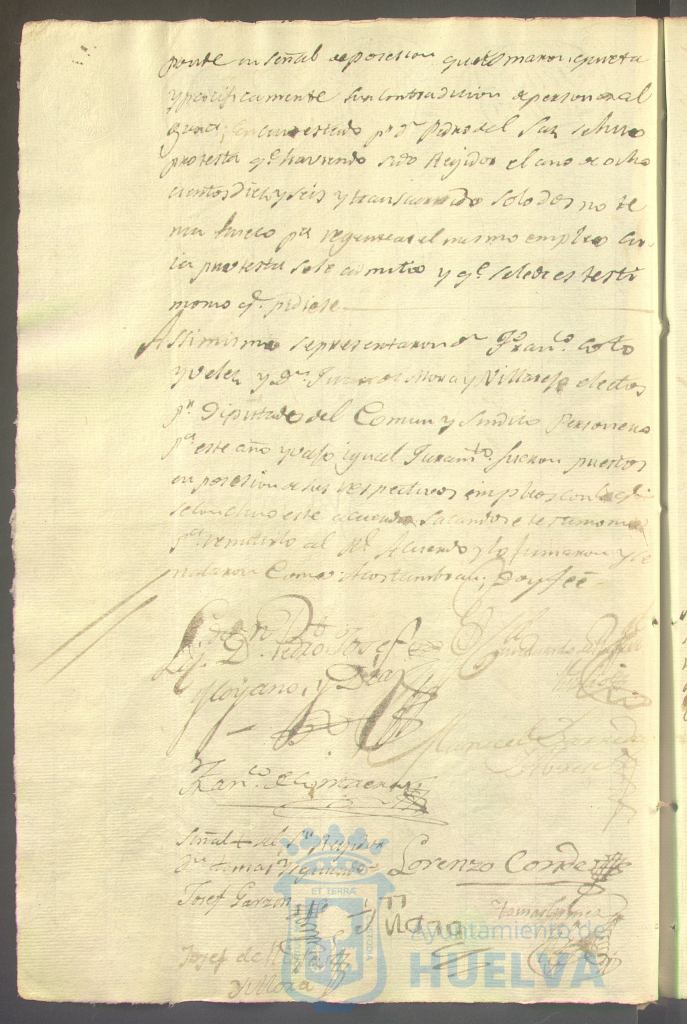 ponte en señal de posesion que tomaron quieta
y pacificamente sin contradicion de persona al
guna; En cuio estado pr Dn Pedro del Saz se hizo
protesta qe haviendo sido Rejidor el año de ocho
cientos Diez y seis y transcurrido solo dos no te
nia hueco pa regentear el mismo empleo cu
ia protesta se le admitio y qe se le diese testi
monio si lo pidiese
Assimismo se presentaron Dn Franco Coto
y Velez y Dn Juan de Mora y Villarejo electos
pr Diputado del Comun y Sindico Personero
pa este año y vajo igual Juramto fueron puestos
en posesion de sus respectivos empleos con lo qe
se concluio este acuerdo sacandose testimonio
pa remitirlo al Rl Acuerdo y lo firmaron y se
ñalaron Como Acostumbran; Doy fee
Lic. Dn Pedro Josef
y Diaz
Manuel
Franco de
Señal + del Sr Rejidor
Dn Tomas
Lorenzo Conde
Josef Garzon
Tomas Gomez
Josef de
y Mora
ET TERRÆ
Ayuntamiento de
HUELVA